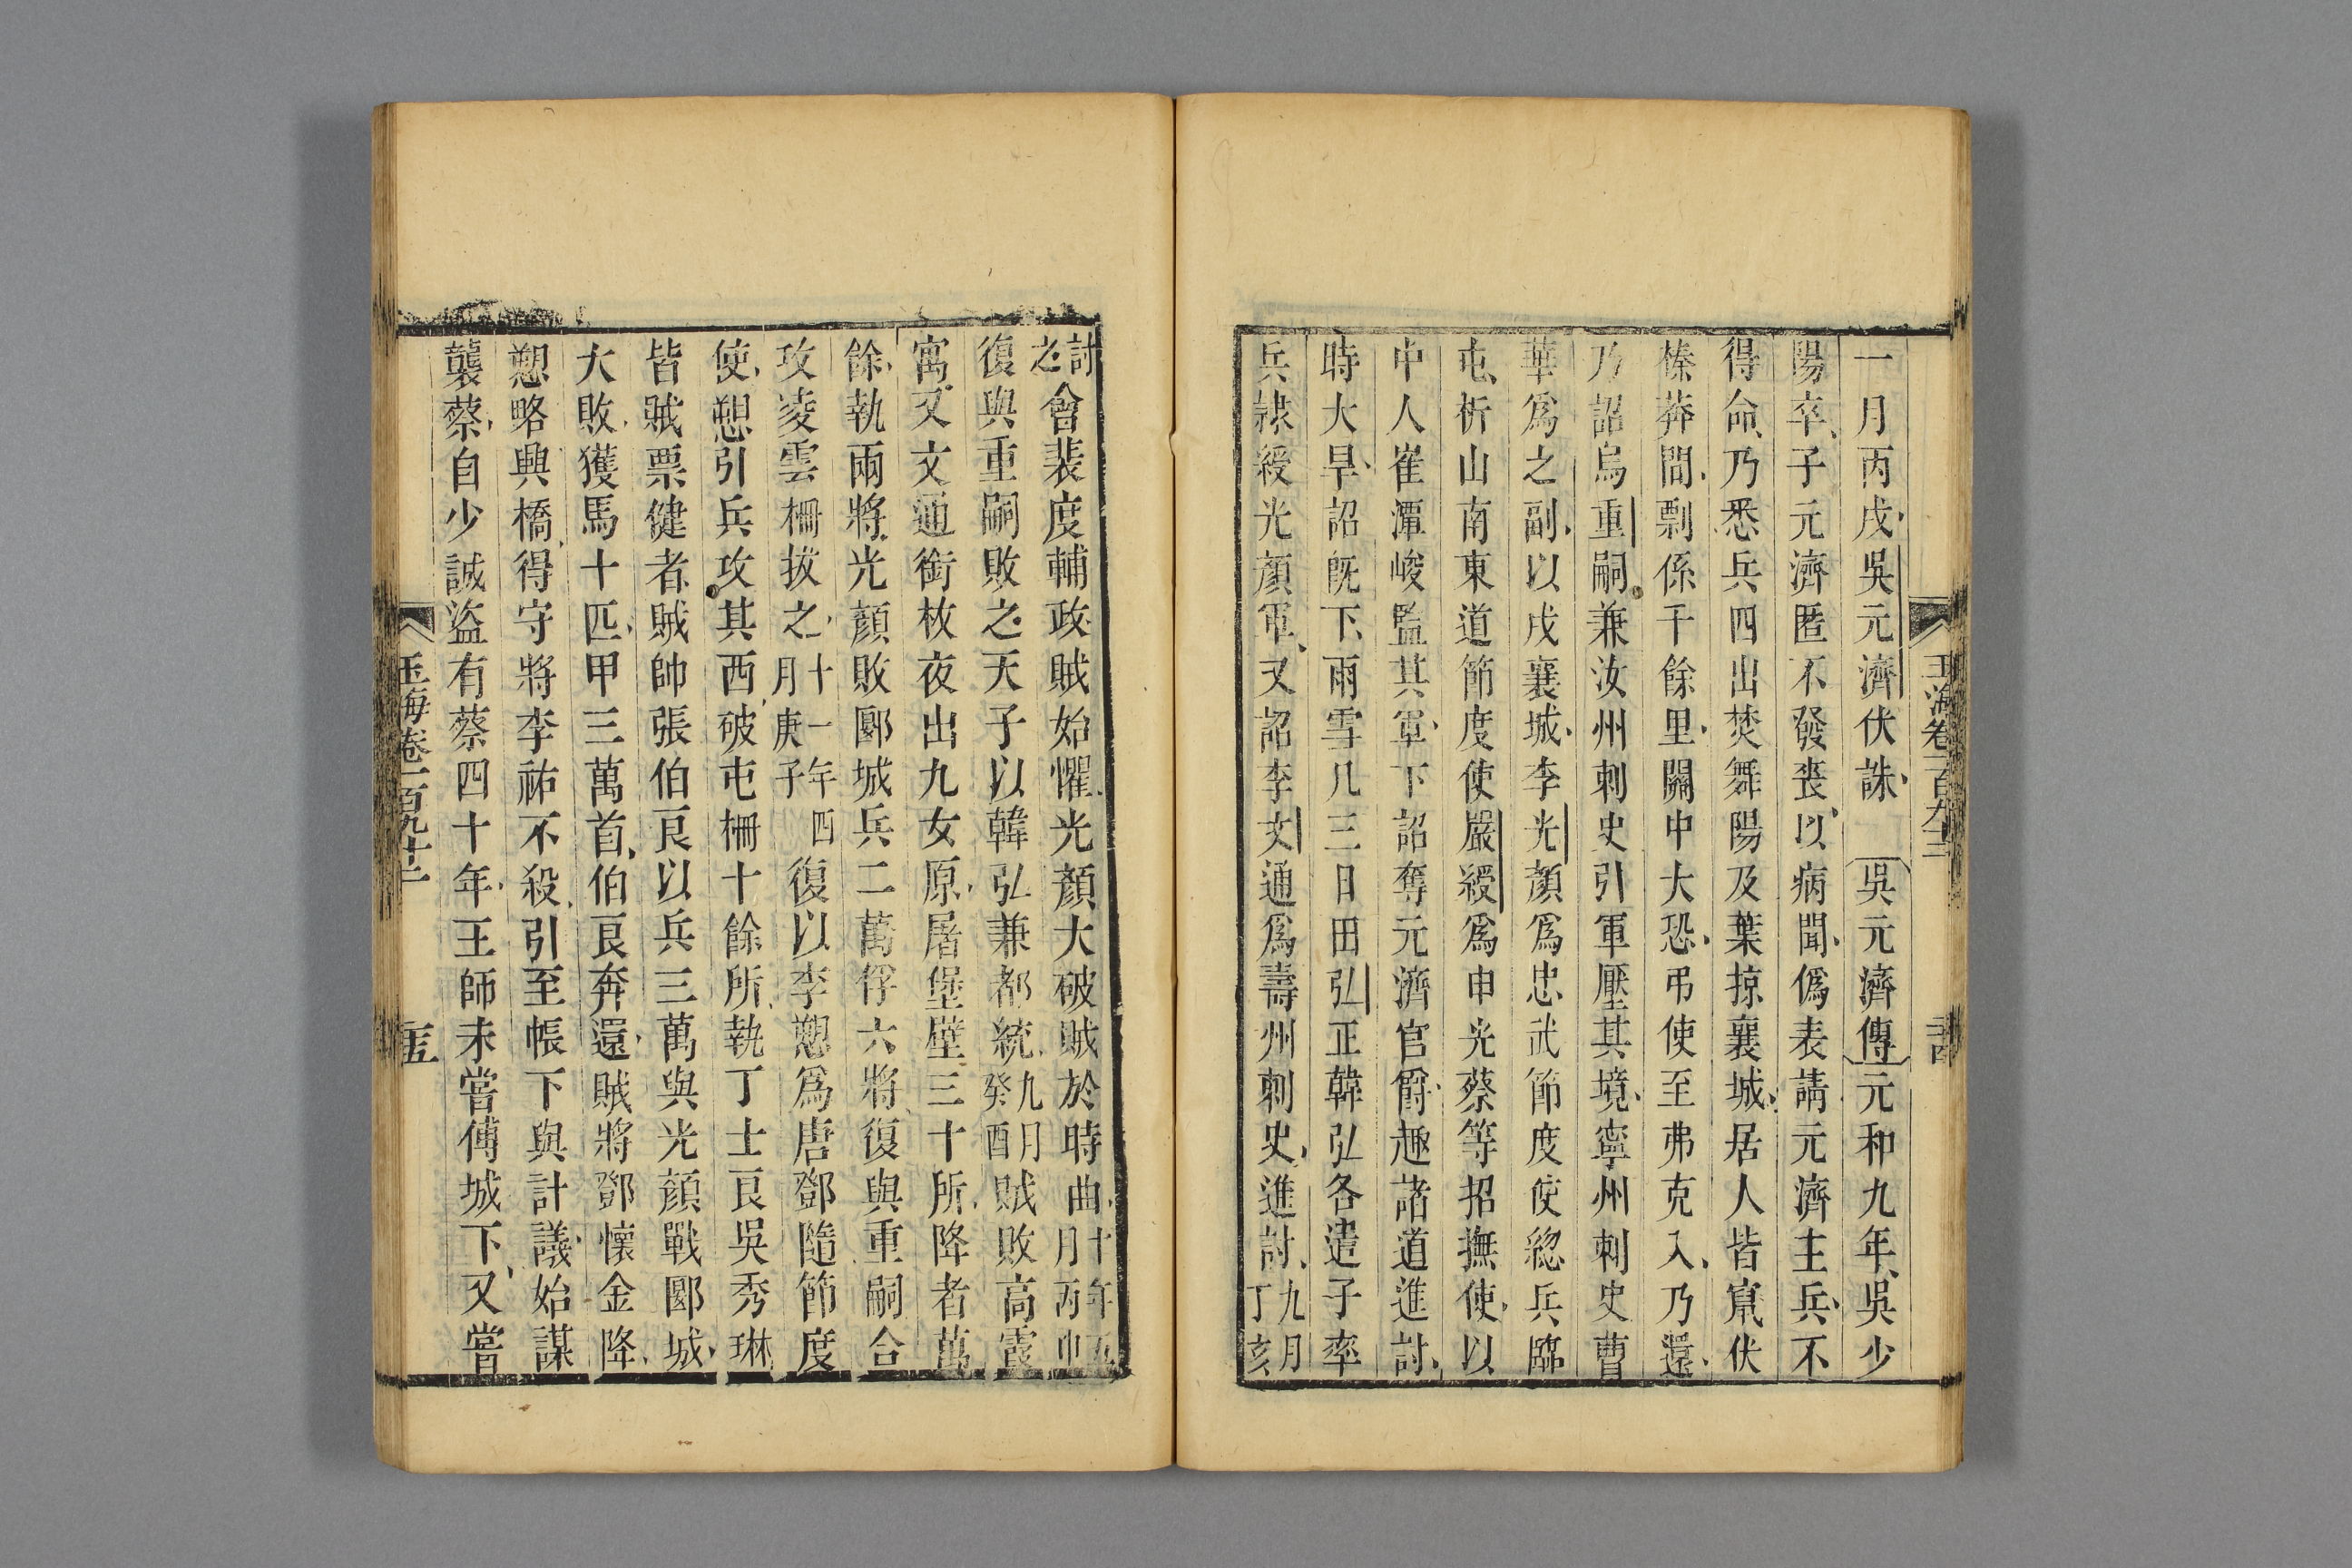 一月丙戌吳元濟伏誅 吳元濟傳元和九年吳少
陽卒子元濟匿不發喪以病聞僞表請元濟主兵不
得命乃悉兵四出焚舞陽及葉掠襄城居人皆竄伏
榛莽間剽係千餘里關中大恐弔使至弗克入乃還
乃詔烏重嗣兼汝州刺史引軍壓其境寧州刺史曹
華爲之副以戍襄城李光顏爲忠武節度使總兵臨
屯析山南東道節度使嚴綬爲申光蔡等招撫使以
中人崔潭峻監其軍下詔奪元濟官爵趣諸道進討
時大旱詔旣下雨雪凡三日田弘正韓弘各遣子率
兵隷綬光顏軍又詔李文通爲壽州刺史進討九月丁亥
討之會裴度輔政賊始懼光顏大破賊於時曲十年五月丙申
復與重嗣敗之天子以韓弘兼都統九月癸酉賊敗高霞
寓又文通銜枚夜出九女原屠堡壁三十所降者萬
餘執兩將光顏敗郾城兵二萬俘六將復與重嗣合
攻凌雲柵拔之十一年四月庚子復以李愬爲唐鄧隨節度
使愬引兵攻其西破屯柵十餘所執丁士良吳秀琳
皆賊票健者賊帥張伯良以兵三萬與光顏戰郾城
大敗獲馬十匹甲三萬首伯良奔還賊將鄧懷金降
愬略興橋得守將李祐不殺引至帳下與計議始謀
襲蔡自少誠盜有蔡四十年王師未嘗傅城下又嘗
玉海卷一百九十二